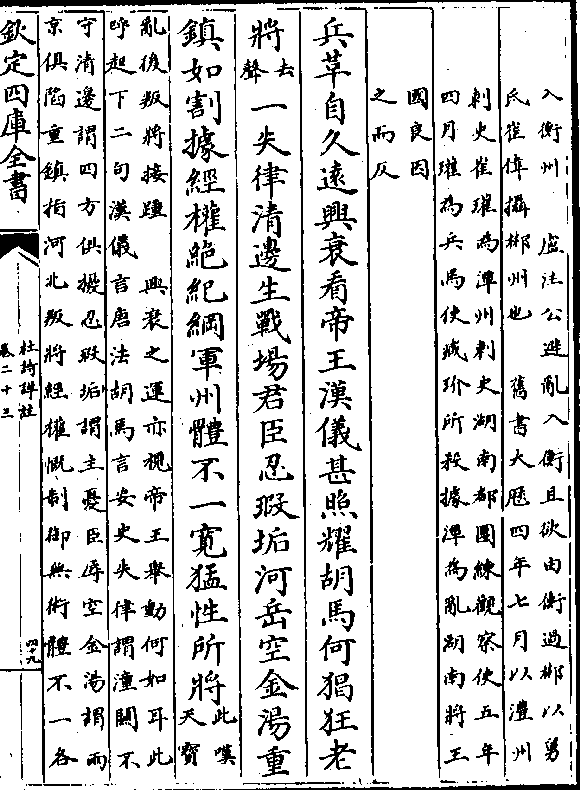 入衡州　盧注公避亂入衡且欲由衡過郴以舅
氏崔偉攝郴州也　舊書大厯四年七月以澧州
刺史崔瓘為潭州刺史湖南都團練觀察使五年
四月瓘為兵馬使臧玠所殺據潭為亂湖南將王
國良因
之而反
兵革自久遠興衰看帝王漢儀甚照耀胡馬何猖狂老
將去聲一失律清邊生戰場君臣忍瑕垢河岳空金湯重
鎮如割據經權絶紀綱軍州體不一寛猛性所將此嘆天寶
亂後叛將接踵　興衰之運亦視帝王舉動何如耳此
呼起下二句漢儀言唐法胡馬言安史失律謂潼關不
守清邊謂四方俱擾忍瑕垢謂主憂臣辱空金湯謂兩
京俱陷重鎮指河北叛將經權慨制御無術體不一各
欽定四庫全書
杜詩詳註
卷二十三
四十九